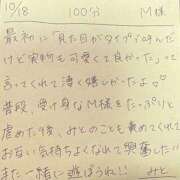 10/18 100分 M様
最初に「見た目がタイプなんだ
けど実物も可愛くて良かった」って
言ってくれて凄く嬉しかったよ♡
普段、受け身なM様をたっぷりと
虐めた後、みとのことも責めてくれて
お互い気持ちよくなれて興奮したい
また一緒に遊ぼうれ!! みと